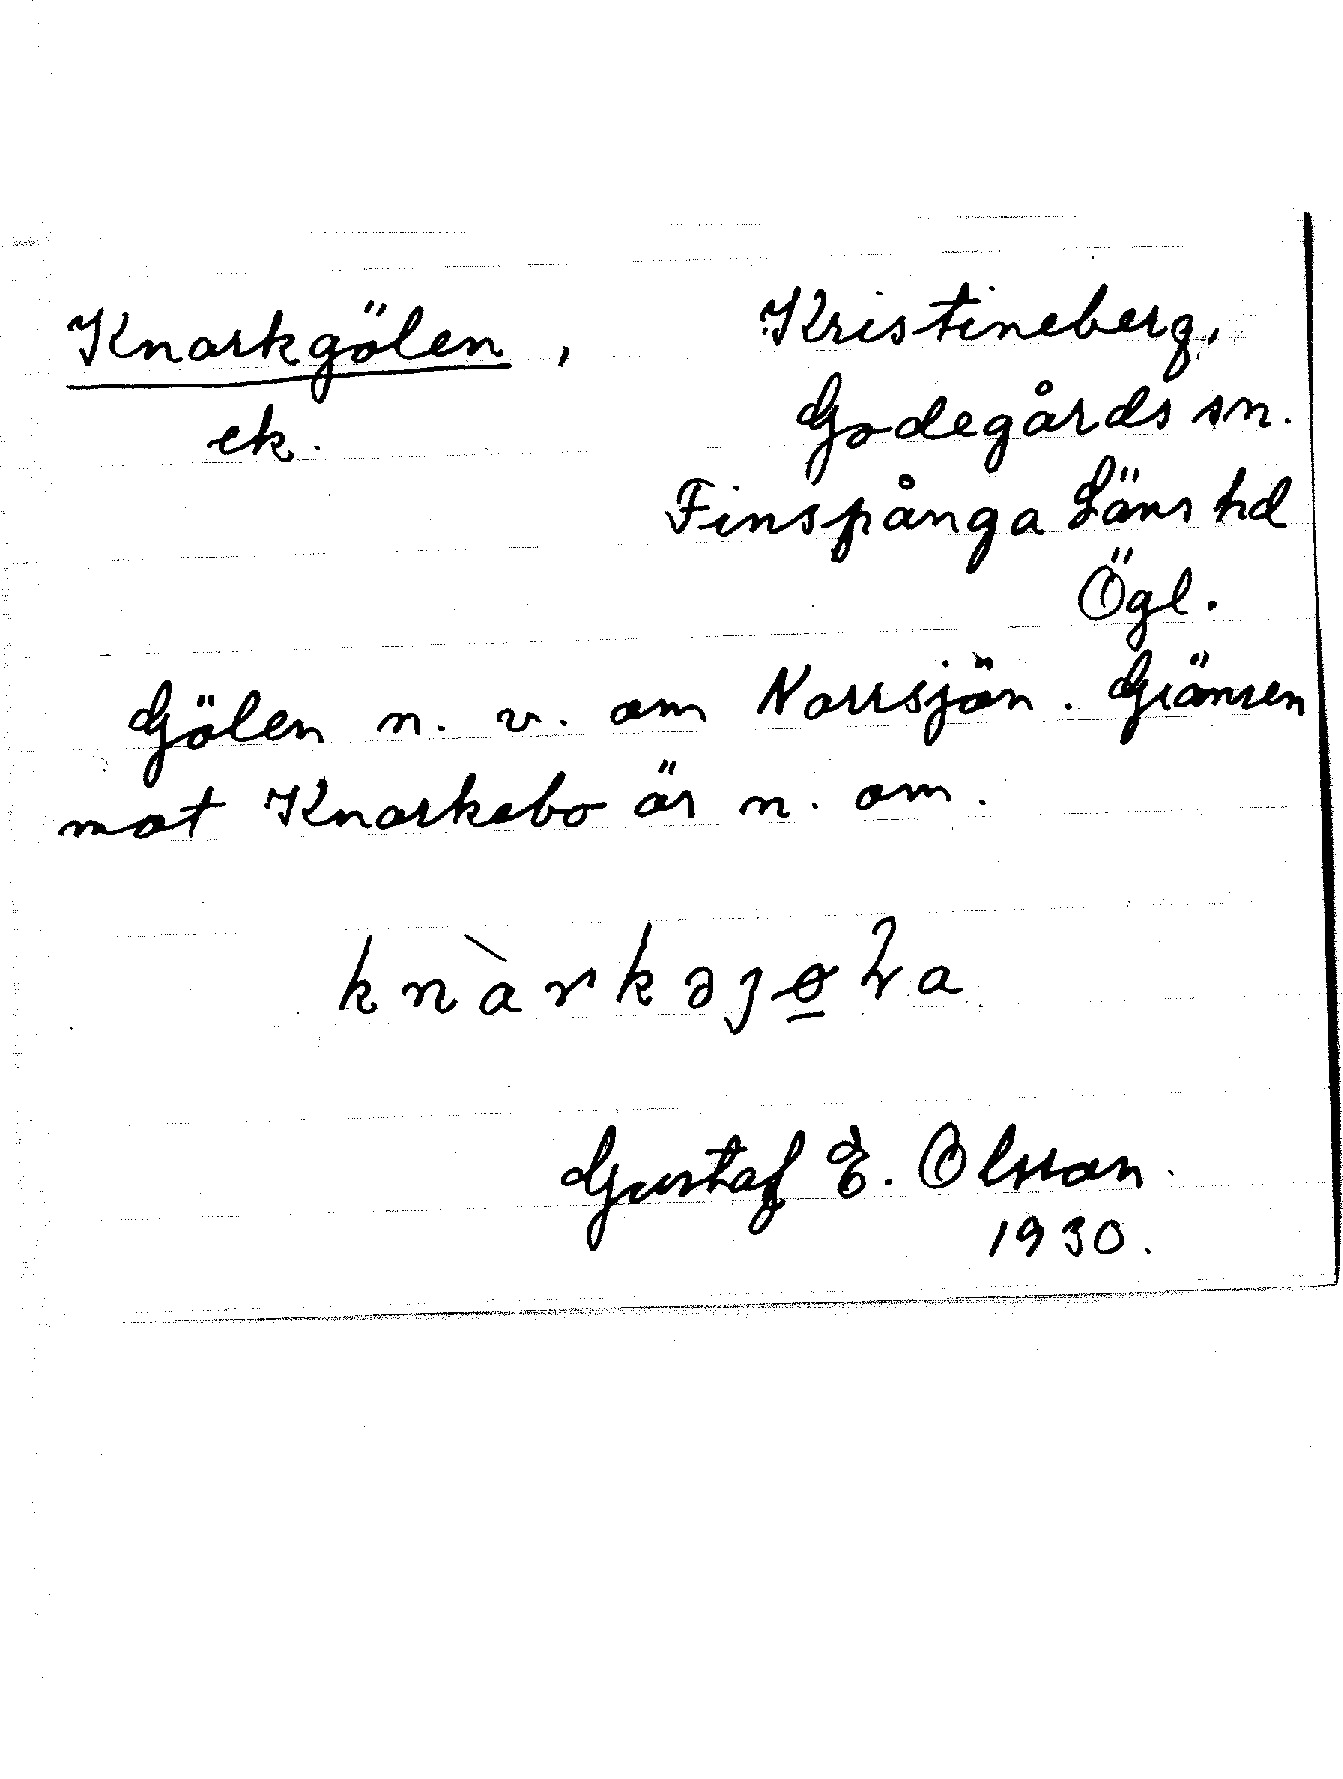 Knarkgölen,
ek.
Kristineberg,
Godegårds sn.
Finspånga Läns hd
Ögl.
Gölen n. v. om Norrsjön. Gränsen
mot Knarkebo är n. om.
knàrkəȷøla
Gustaf E. Olsson
1930.